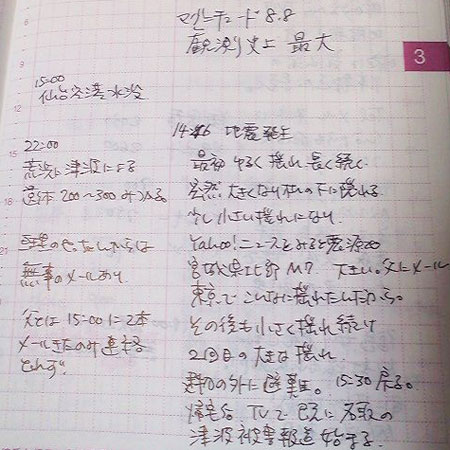 マグニチュード8.8
観測史上 最大
3
15:00
仙台空港水没
22:00
荒浜に津波による
遺体 200〜300 みつかる。
無事のメールあり
父とは 15:00に2本
メールきたのみ連絡
とれず。
14:46 地震発生
最初 ゆるく 揺れ 長く続く
突然 大きくなり 机の下に隠れる
少し小さい揺れになり、
Yahoo!ニュースをみると震源
宮城県北部 M7 大きい。父にメール
東京で こんなに揺れたんだから。
その後も小さく揺れ続け
2回目の大きな揺れ。
建物の外に避難。 15:30 戻る。
帰宅後 TVで 既に名取の
津波被害報道始まる。